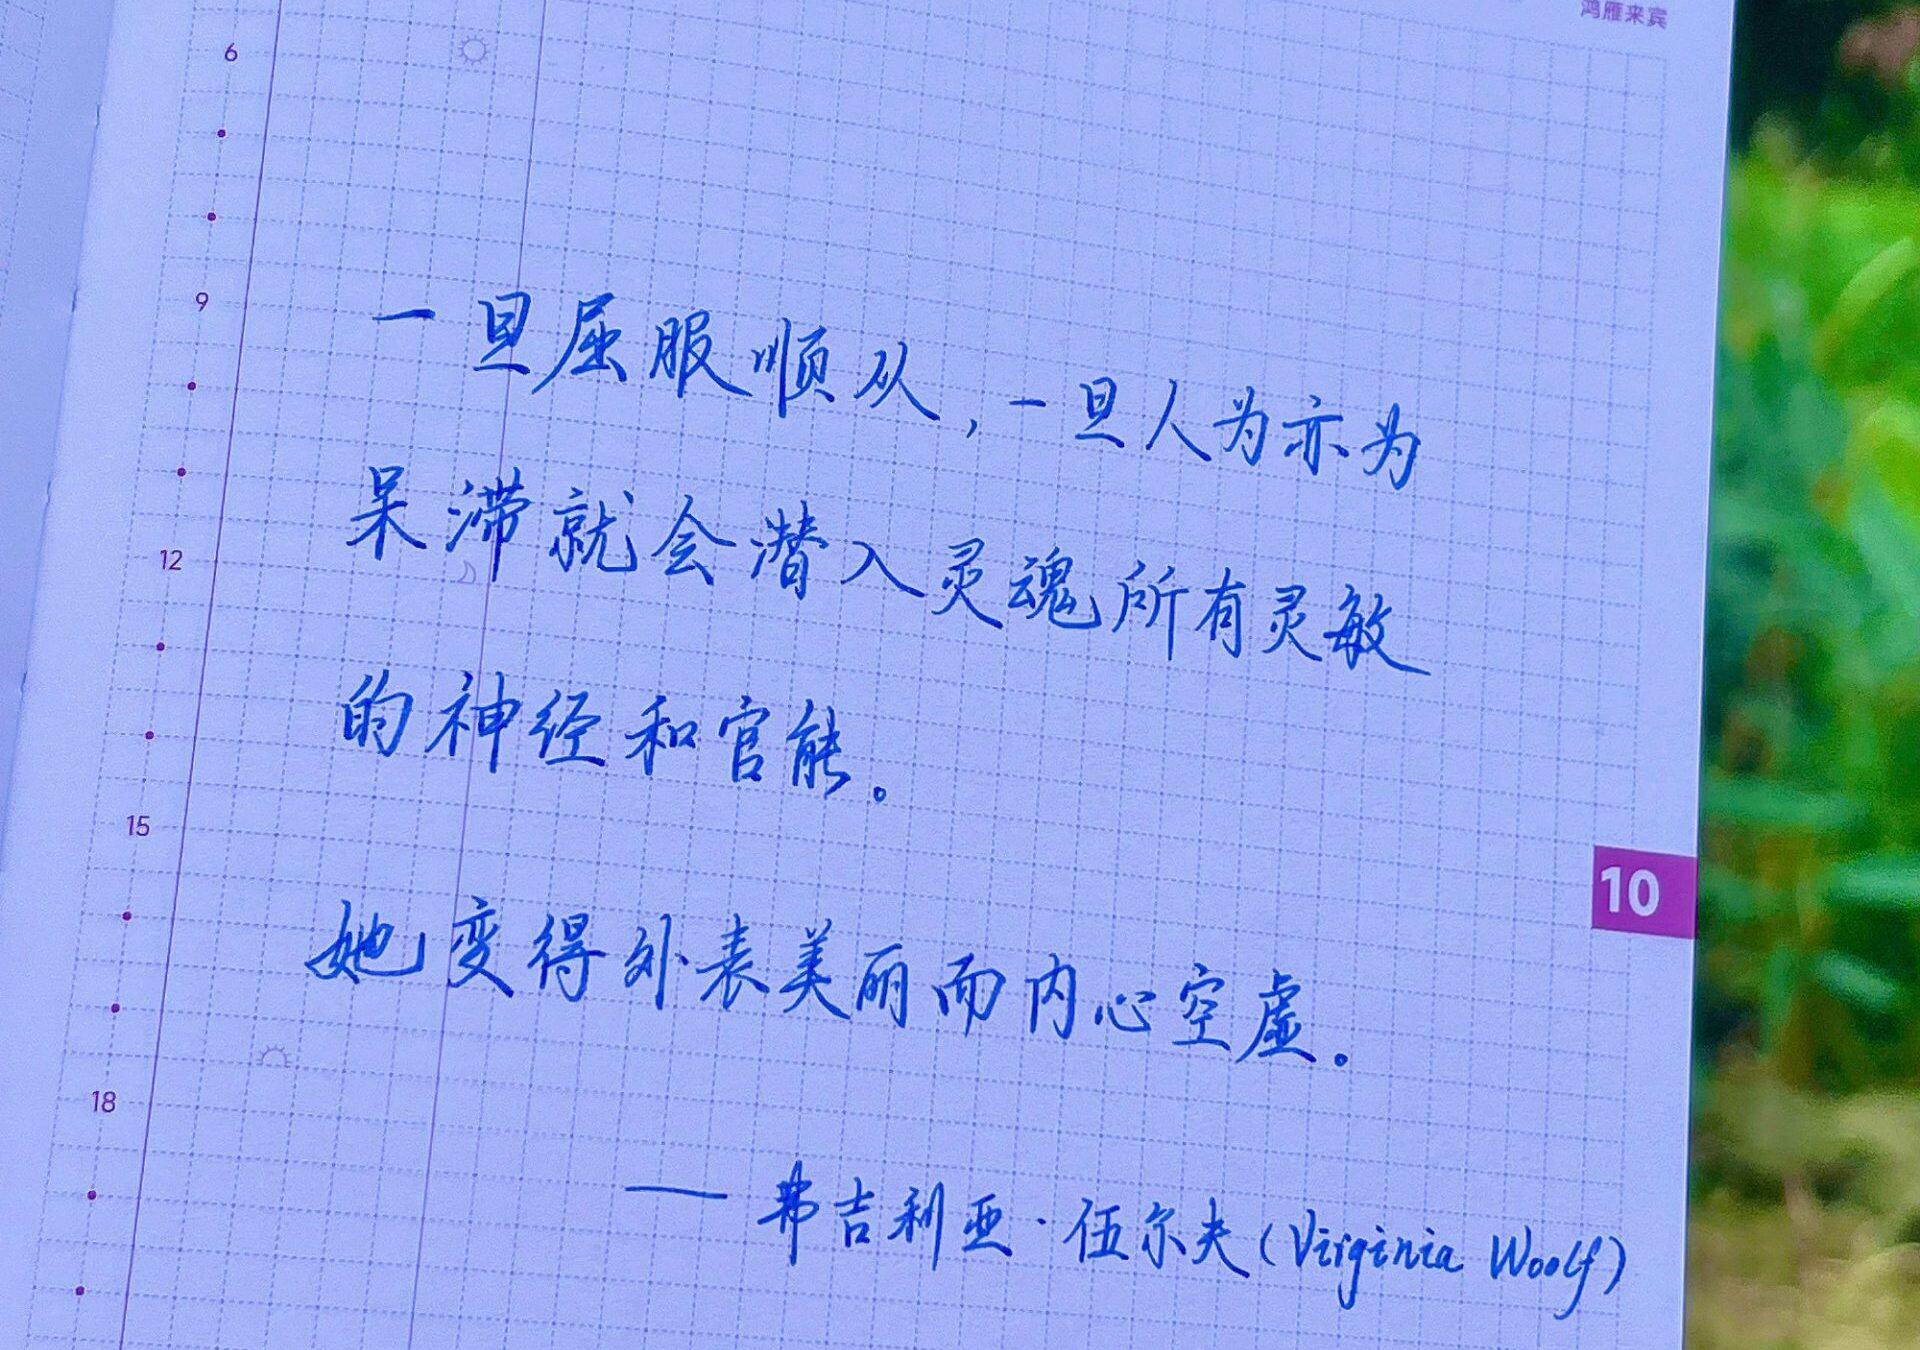 鸿雁来宾
6
9
一旦屈服顺从，一旦人为亦为
12
呆滞就会潜入灵魂所有灵敏
的神经和官能。
15
10
她变得外表美丽而内心空虚。
18
——弗吉利亚·伍尔夫(Virginia Woolf)